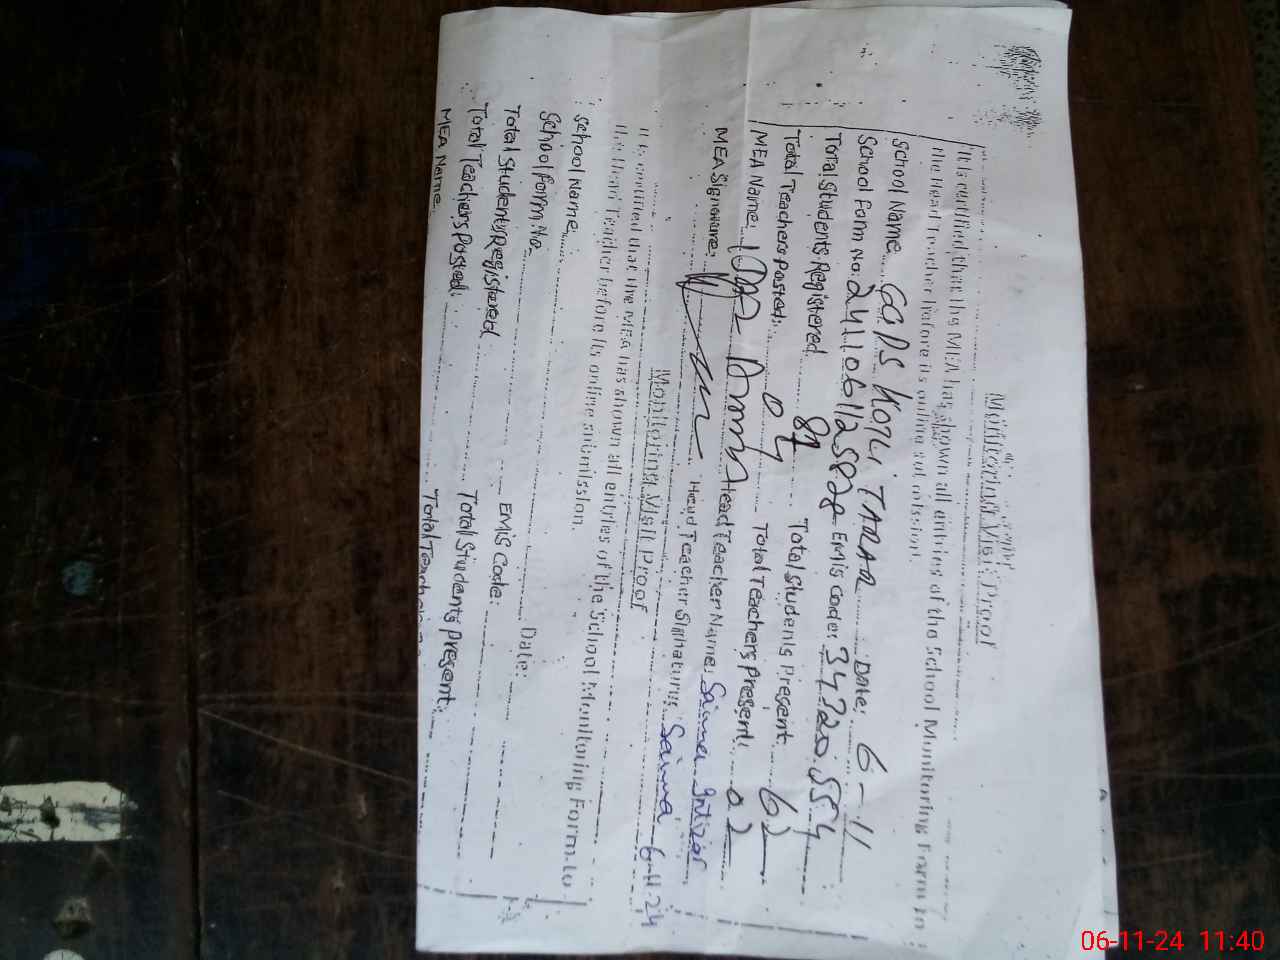 Monitoring Visit Proof
It is certified that the MEA has shown all entries of the School Monitoring Form to
the Head Teacher before its online submission.
School Name GGPS Kotli TARAR Date: 6-11
School Form No. 24110611258 EMIS Code: 34720554
Total Students Registered 87 Total Students Present 62
Total Teachers Posted: 04 Total Teachers Present: 02
MEA Name: Head Teacher Name: Saima Intizar
MEA Signature: Head Teacher Signature: Saima 6-11-24
Monitoring Visit Proof
It is certified that the MEA has shown all entries of the School Monitoring Form to
the Head Teacher before its online submission.
School Name
School Form No. Date:
Total Students Registered EMIS Code:
Total Teachers Posted: Total Students Present:
MEA Name:
06-11-24 11:40